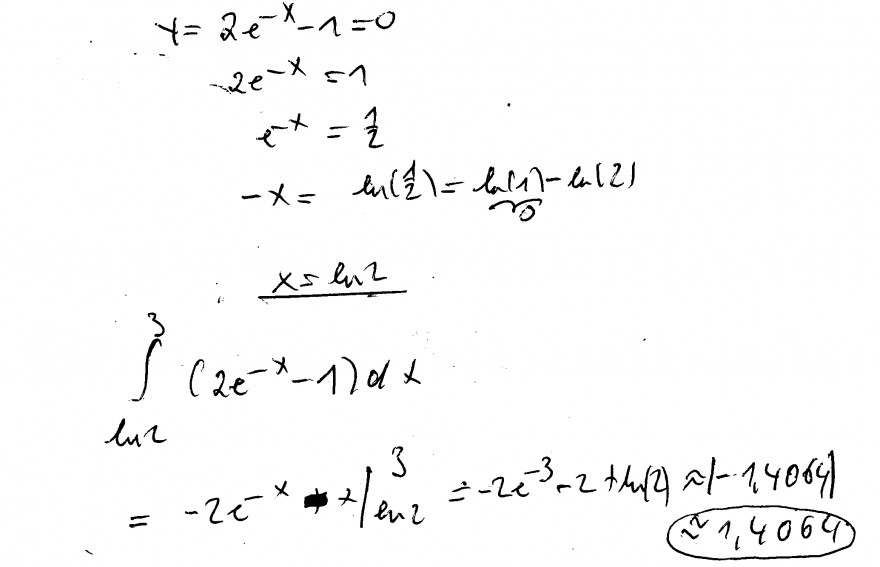 y = 2e^{-x} - 1 = 0
2e^{-x} = 1
e^{-x} = 1/2
-x = ln(1/2) = ln(1) - ln(2)
0
x = ln 2
∫_{ln 2}^{3} (2e^{-x} - 1) dx
= -2e^{-x} - x |_{ln 2}^{3} = -2e^{-3} - 2 + ln(2) ≈ |-1,4064|
≈ 1,4064